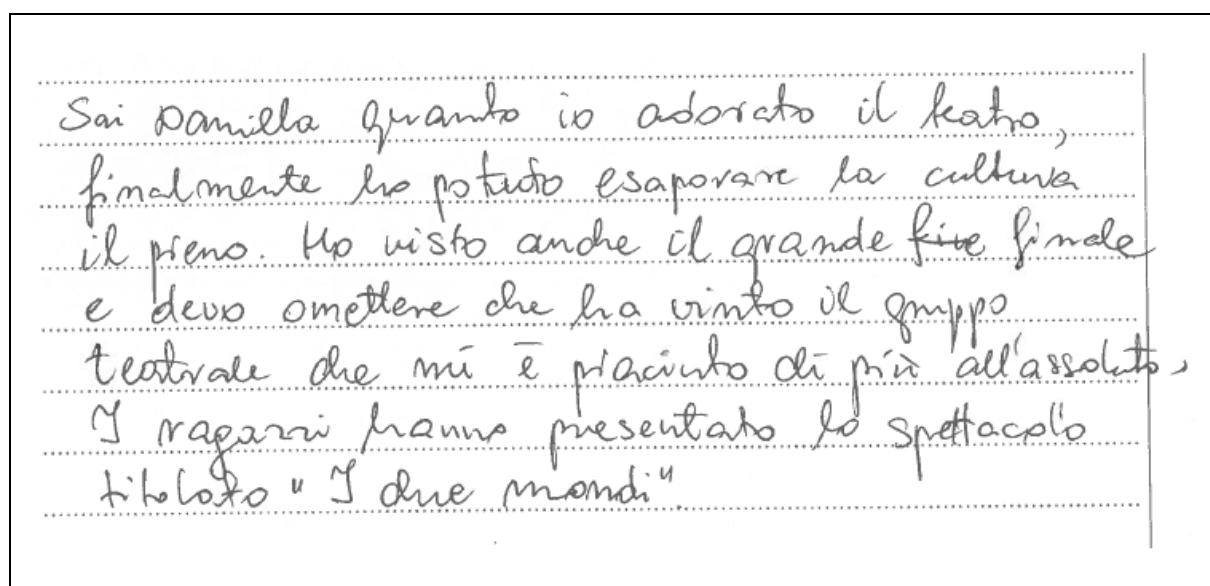 Sai Daniella quanto io adorato il teatro,
finalmente ho potuto esaporare la cultura
il pieno. Ho visto anche il grande fine finale
e devo omettere che ha vinto il gruppo
teatrale che mi è piaciuto di più all'assoluto,
I ragazzi hanno presentato lo spettacolo
titolato "I due mondi".